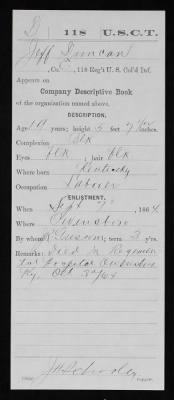 D | 118 | U.S.C.T.
Jeff Duncan
, Co. , 118 Reg't U. S. Col'd Inf.
Appears on
Company Descriptive Book
of the organization named above.
DESCRIPTION.
Age 19 years; height 5 feet inches.
Complexion Blk
Eyes Blk, hair Blk
Where born Kentucky
Occupation Laborer
ENLISTMENT.
When Sept , 1864
Where Owensboro
By whom ; term 3 y'rs.
Remarks: Died in Regimen
tal Hospital Owensboro
Ky. Oct 30/64